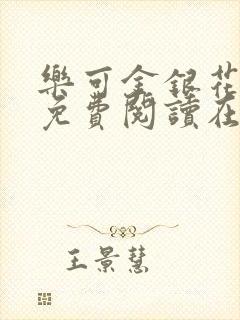 樂可金銀花
免費閱讀在
王景慧